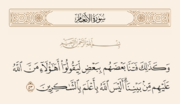 سُورَةُ الأَنْعَامِ
بِسْمِ اللَّهِ الرَّحْمَٰنِ الرَّحِيمِ
وَكَذَٰلِكَ فَتَنَّا بَعْضَهُم بِبَعْضٍ لِّيَقُولُوٓا۟ أَهَٰٓؤُلَآءِ مَنَّ ٱللَّهُ
عَلَيْهِم مِّنۢ بَيْنِنَآ أَلَيْسَ ٱللَّهُ بِأَعْلَمَ بِٱلشَّٰكِرِينَ ٥٣